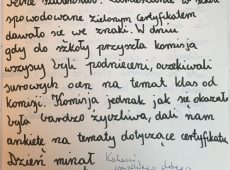 spowodowane zielonym certyfikatem
dawało się we znaki. W dniu
gdy do szkoły przyszła komisja
wszyscy byli podnieceni, oczekiwali
surowych ocen na temat klas od
komisji. Komisja jednak jak się okazało
była bardzo życzliwa, dali nam
ankietę na tematy dotyczące certyfikatu.
Dzień minął